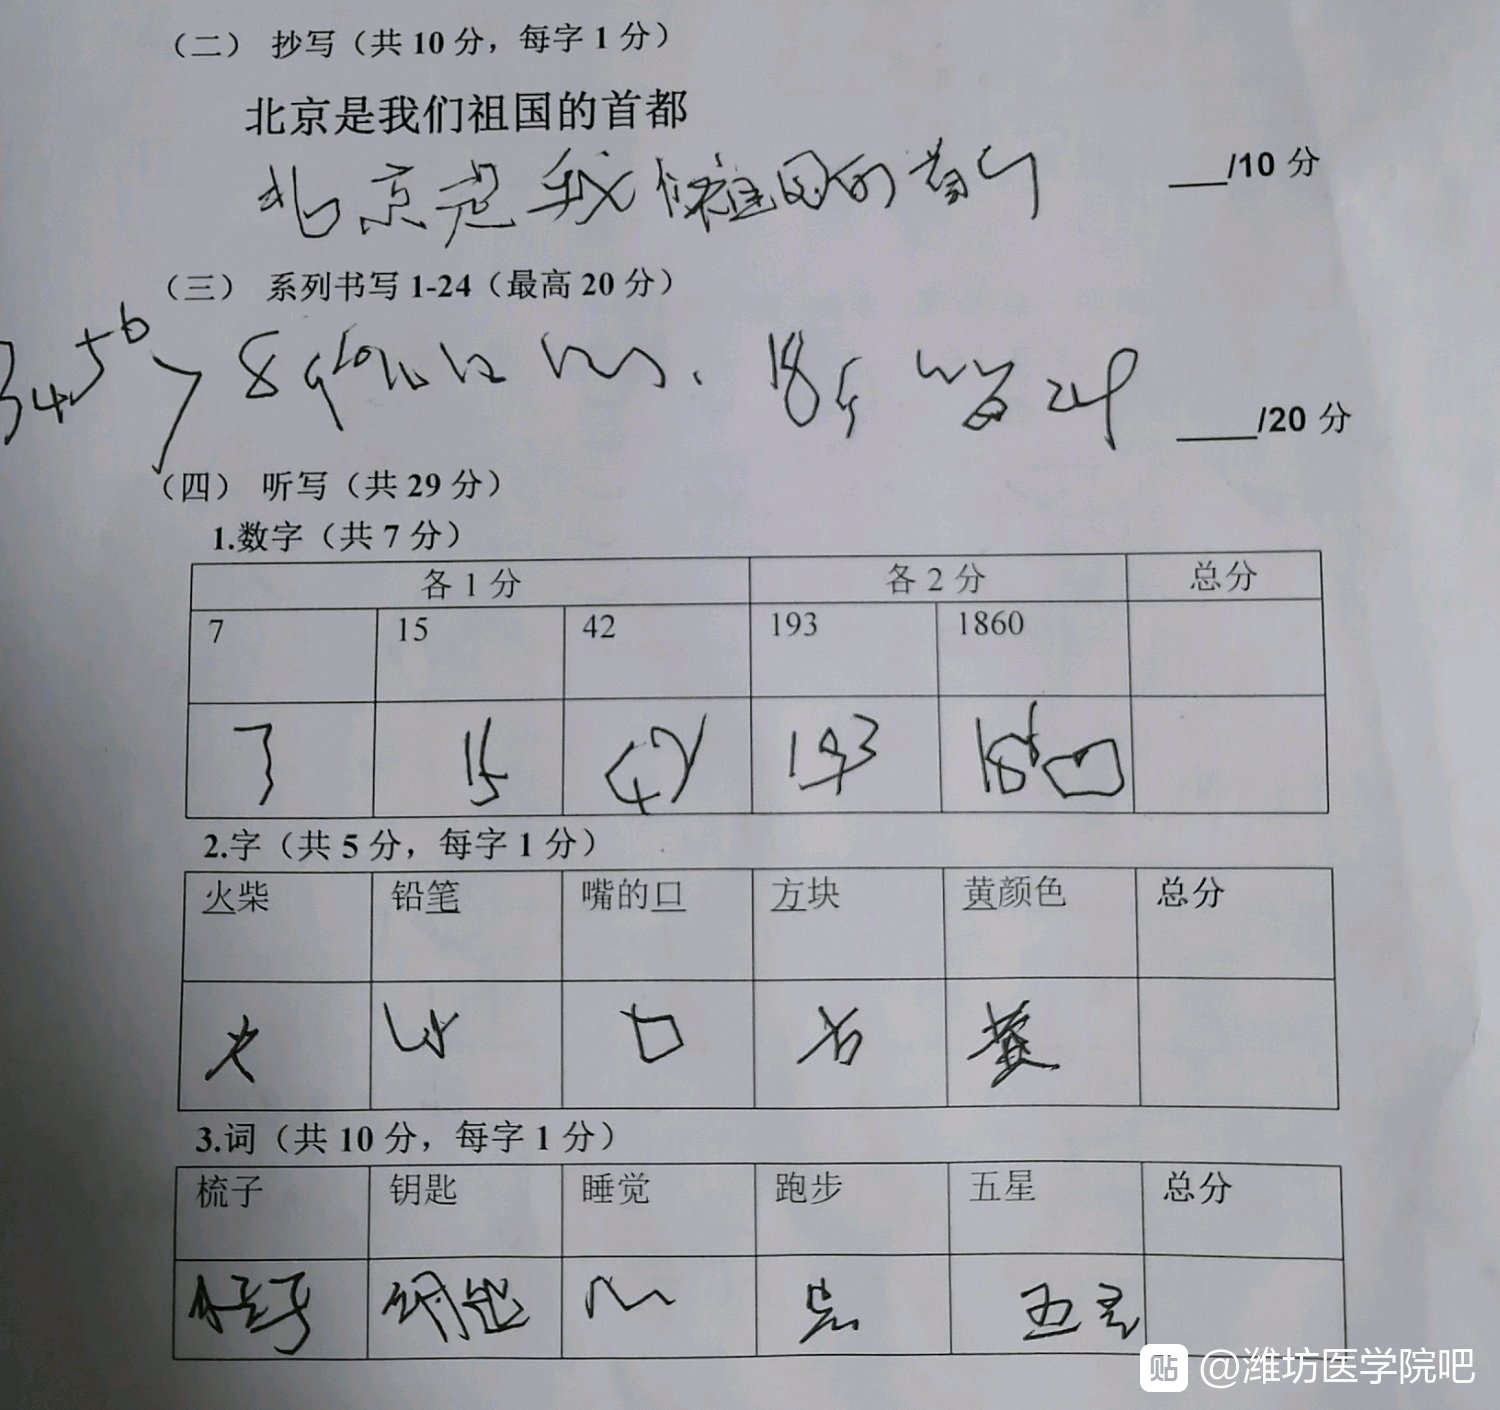 （二） 抄写（共 10 分，每字 1 分）
北京是我们祖国的首都
北京是我们祖国的首
___/10 分
（三） 系列书写 1-24（最高 20 分）
3 4 5 6 7 8 9 10 11 12 18 24
____/20 分
（四） 听写（共 29 分）
1.数字（共 7 分）
各 1 分 各 2 分 总分
7 15 42 193 1860
7 15 42 193 1860
2.字（共 5 分，每字 1 分）
火柴 铅笔 嘴的口 方块 黄颜色 总分
火 口 方 黄
3.词（共 10 分，每字 1 分）
梳子 钥匙 睡觉 跑步 五星 总分
梳子 钥匙 五星
贴 @潍坊医学院吧